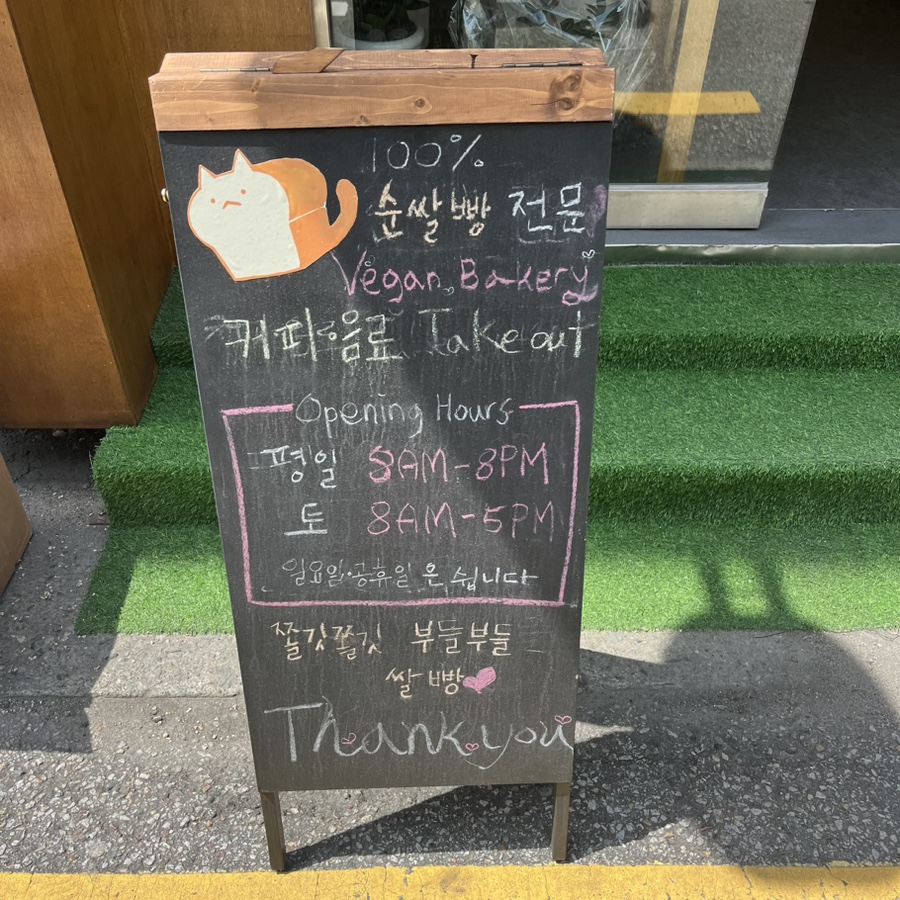 100%
순쌀빵 전문
Vegan Bakery
커피음료 Take out
Opening Hours
평일 8AM-8PM
토 8AM-5PM
일요일·공휴일은 쉽니다
쫄깃쫄깃 부들부들
쌀빵
Thank you